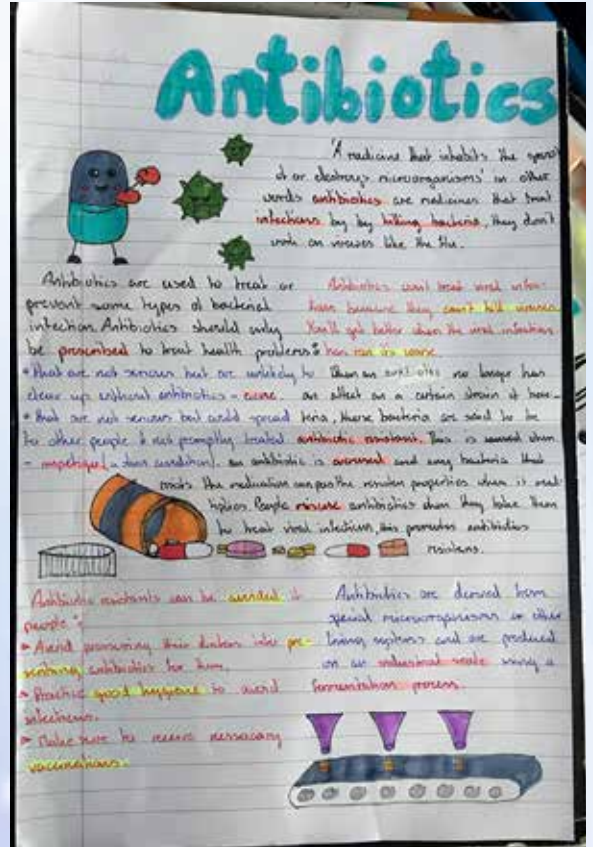 Antibiotics
'A medicine that inhabits the growt
of or destroys microorganisms' in other
words antibiotics are medicines that treat
infections by by killing bacteria, they don't
work on viruses like the flu.
Antibiotics are used to treat or
prevent some types of bacterial
infection. Antibiotics should only
be prescribed to treat health problems:
• that are not serious but are unlikely to
clear up without antibiotics - acne.
• that are not serious but could spread
to other people if not promptly treated
- impetigo (a skin condition).
Antibiotics can't treat viral infec-
tions because they can't kill viruses.
You'll get better when the viral infection
has ran it's course.
When an antibiotic no longer has
an affect on a certain strain of bac-
teria, those bacteria are said to be
antibiotic resistant. This is caused when
an antibiotic is overused and any bacteria that
resists the medication can pass the resistan properties when it mul-
tiplies. People misuse antibiotics when they take them
to treat viral infections, this promotes antibiotics
resistans.
Antibiotic resistants can be avoided if
people:
Avoid pressuring their doctors into pre-
scribing antibiotics for them.
Practice good hygiene to avoid
infections.
Make sure to receive nessacary
vaccinations.
Antibiotics are derived from
special microorganisms or other
living systems and are produced
on an industrial scale using a
fermentation process.